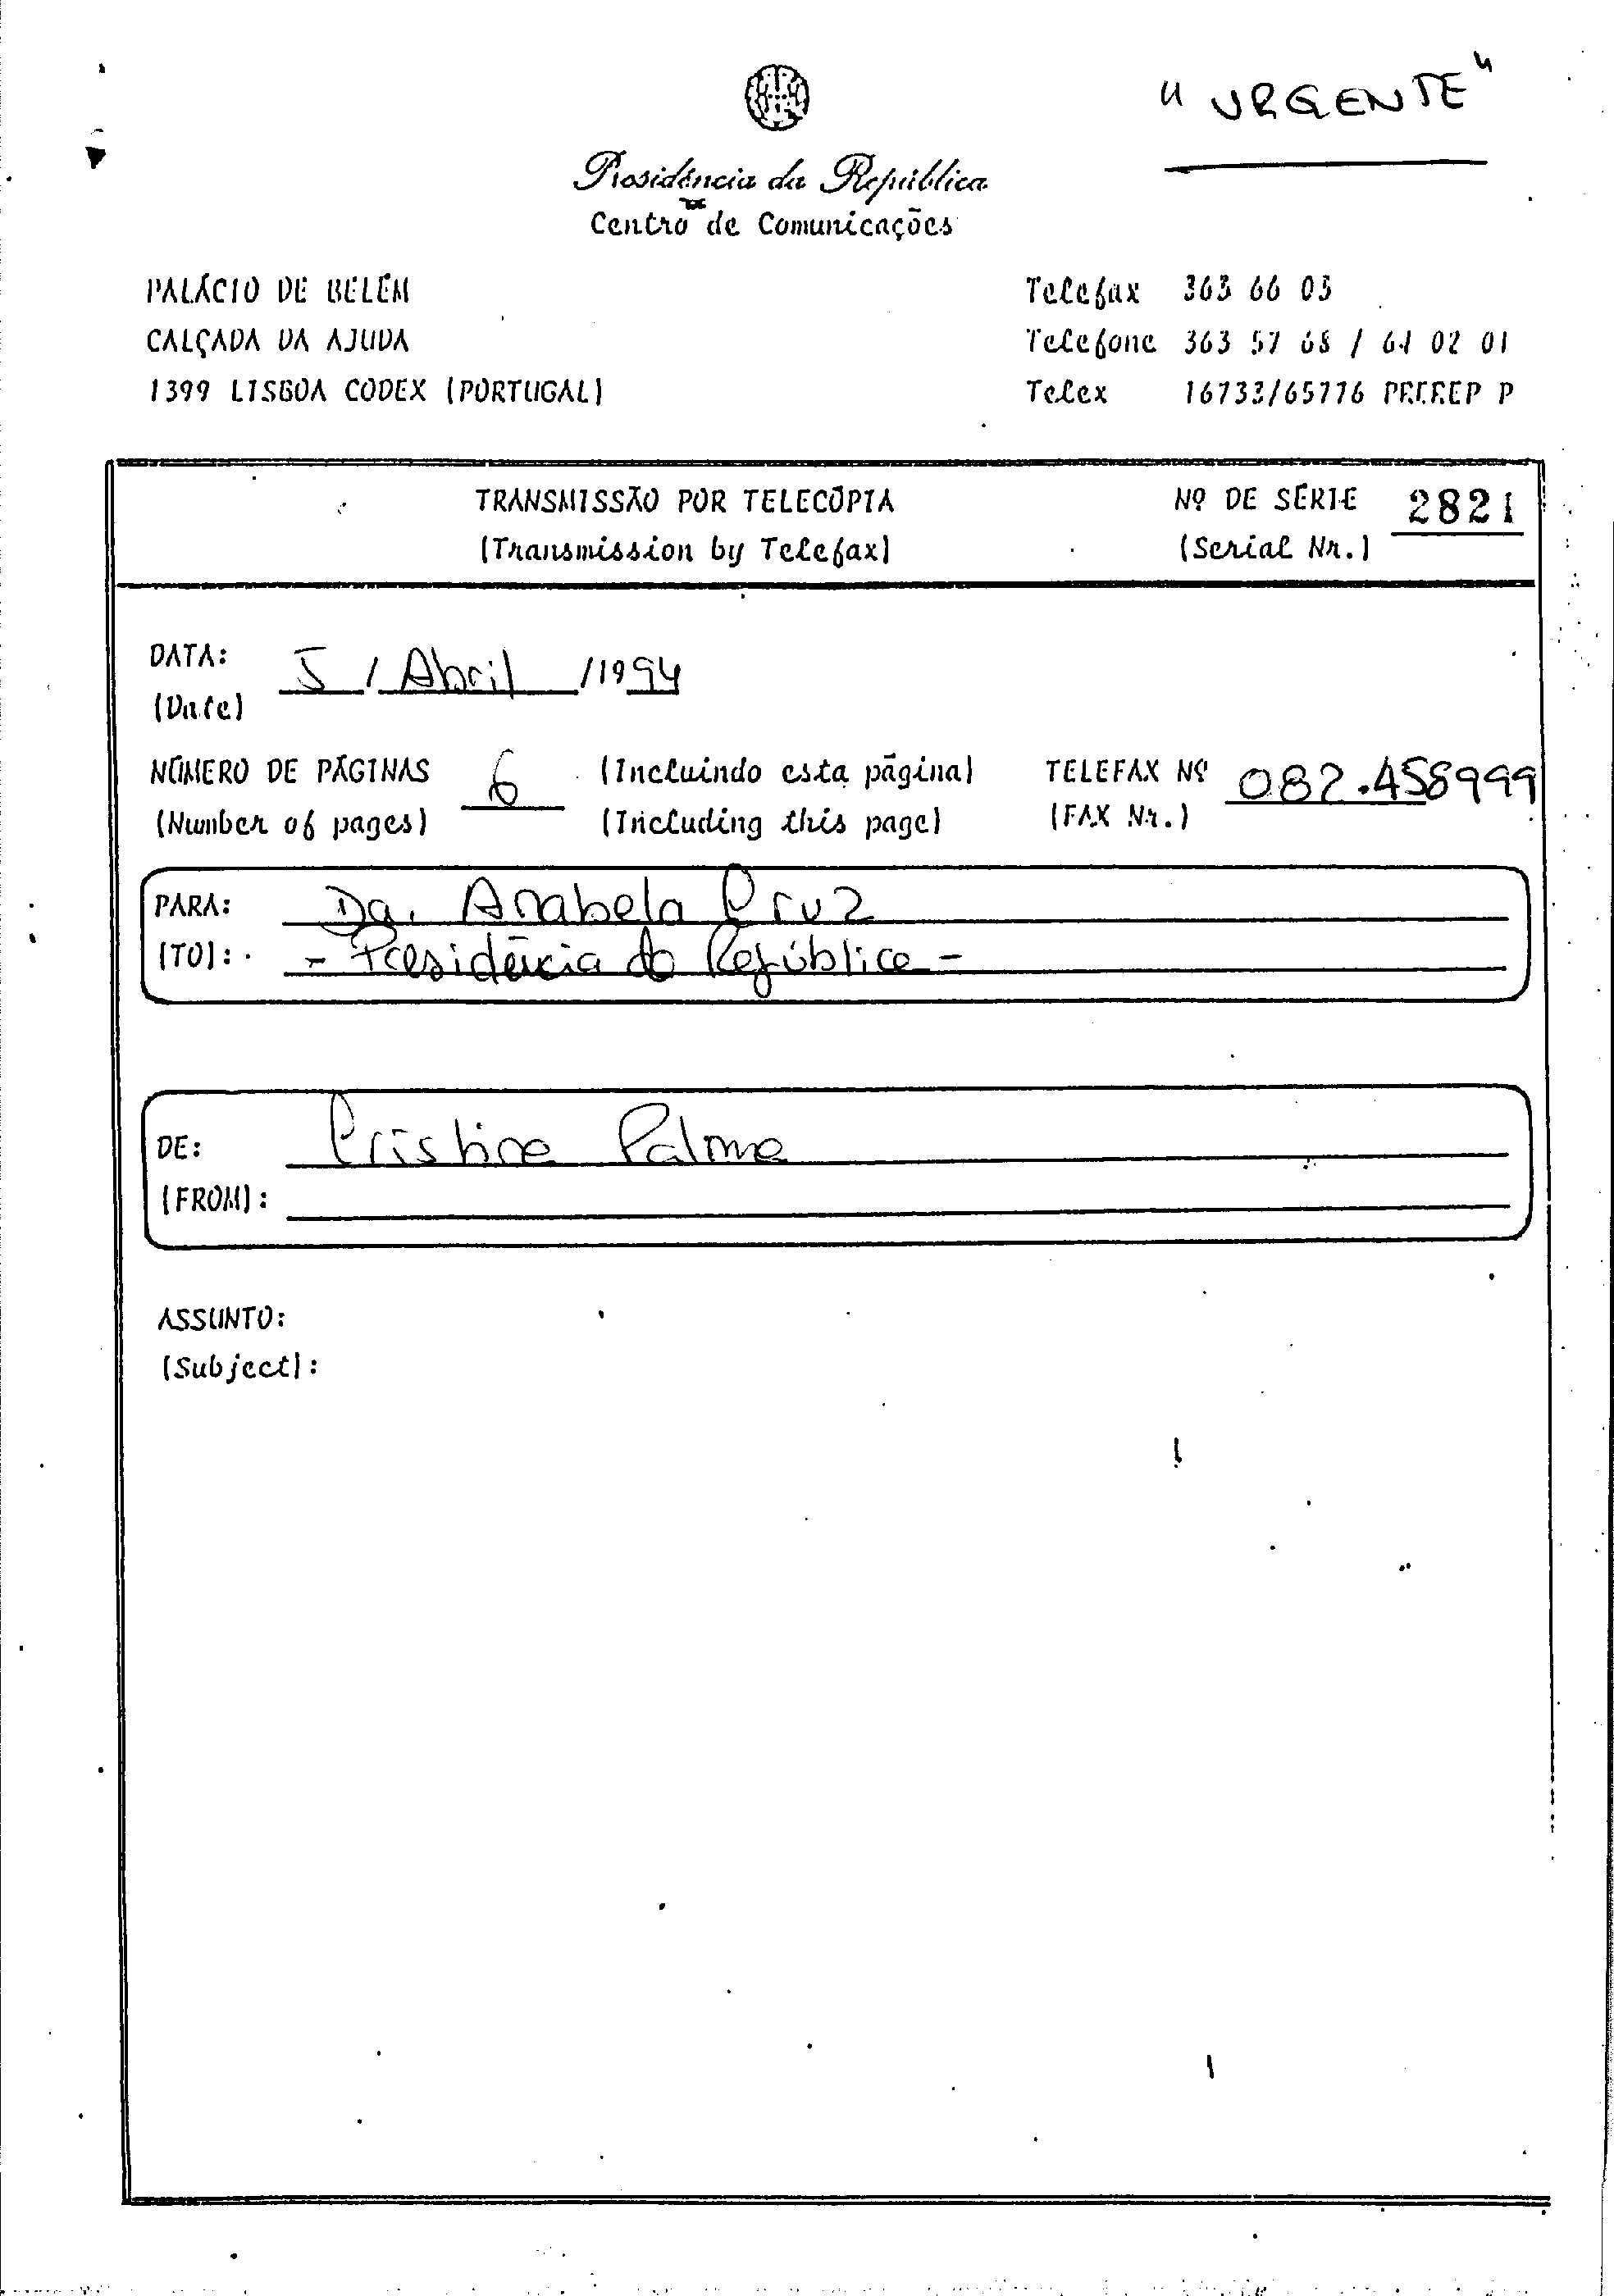 "URGENTE"
Presidência da República
Centro de Comunicações
PALÁCIO DE BELÉM
CALÇADA DA AJUDA
1399 LISBOA CODEX (PORTUGAL)
Telefax 363 66 03
Telefone 363 57 68 / 64 02 01
Telex 16733/65776 PREREP P
TRANSMISSÃO POR TELECÓPIA
(Transmission by Telefax)
Nº DE SÉRIE 2821
(Serial Nr.)
DATA: 5 / Abril / 1994
(Date)
NÚMERO DE PÁGINAS 6 (Incluindo esta página) TELEFAX Nº 082.458999
(Number of pages) (Including this page) (FAX Nr.)
PARA: Da. Anabela Cruz
(TO): - Presidência da República -
DE: Cristina Palma
(FROM):
ASSUNTO:
(Subject):